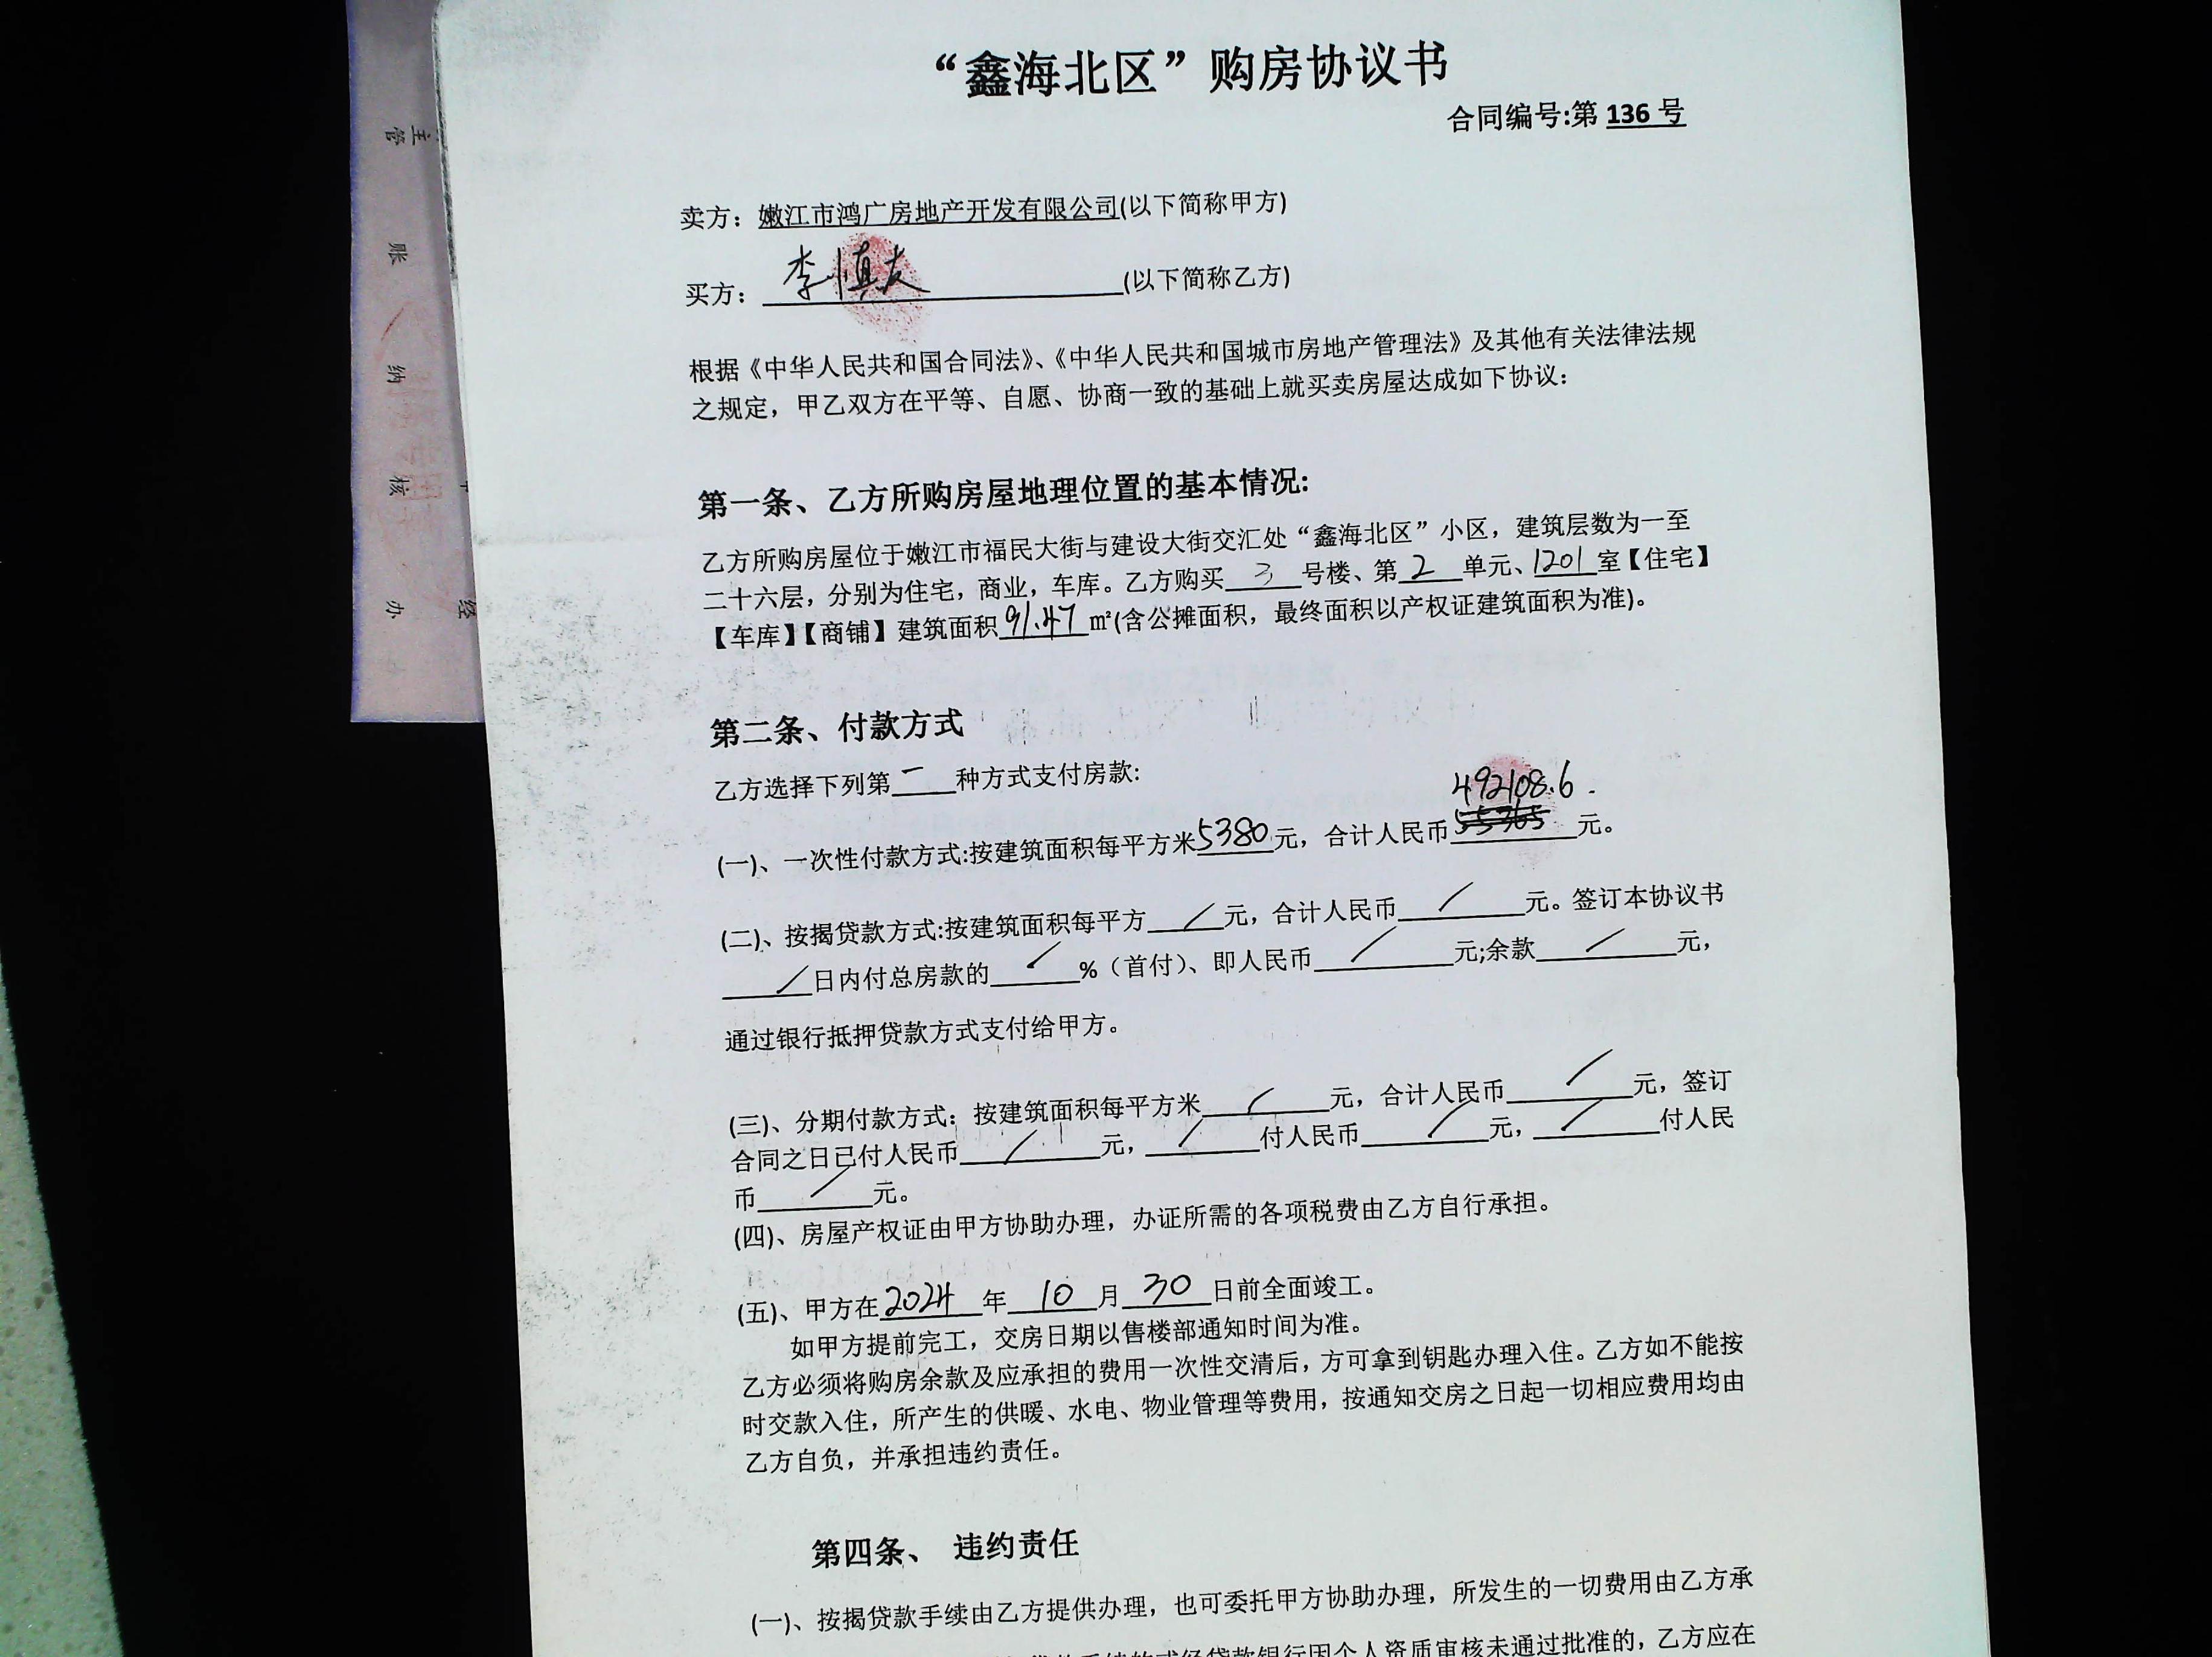 “鑫海北区”购房协议书
合同编号:第 136 号
卖方：嫩江市鸿广房地产开发有限公司(以下简称甲方)
买方：李慎友(以下简称乙方)
根据《中华人民共和国合同法》、《中华人民共和国城市房地产管理法》及其他有关法律法规
之规定，甲乙双方在平等、自愿、协商一致的基础上就买卖房屋达成如下协议：
第一条、乙方所购房屋地理位置的基本情况:
乙方所购房屋位于嫩江市福民大街与建设大街交汇处“鑫海北区”小区，建筑层数为一至
二十六层，分别为住宅，商业，车库。乙方购买 3 号楼、第 2 单元、1201 室【住宅】
【车库】【商铺】建筑面积 91.47 ㎡(含公摊面积，最终面积以产权证建筑面积为准)。
第二条、付款方式
乙方选择下列第 一 种方式支付房款:
492108.6
(一)、一次性付款方式:按建筑面积每平方米 5380 元，合计人民币 元。
(二)、按揭贷款方式:按建筑面积每平方 / 元，合计人民币 / 元。签订本协议书
/ 日内付总房款的 / %（首付）、即人民币 / 元;余款 / 元，
通过银行抵押贷款方式支付给甲方。
(三)、分期付款方式：按建筑面积每平方米 / 元，合计人民币 / 元，签订
合同之日已付人民币 / 元， / 付人民币 / 元， / 付人民
币 / 元。
(四)、房屋产权证由甲方协助办理，办证所需的各项税费由乙方自行承担。
(五)、甲方在 2024 年 10 月 30 日前全面竣工。
如甲方提前完工，交房日期以售楼部通知时间为准。
乙方必须将购房余款及应承担的费用一次性交清后，方可拿到钥匙办理入住。乙方如不能按
时交款入住，所产生的供暖、水电、物业管理等费用，按通知交房之日起一切相应费用均由
乙方自负，并承担违约责任。
第四条、 违约责任
(一)、按揭贷款手续由乙方提供办理，也可委托甲方协助办理，所发生的一切费用由乙方承
贷款银行因个人资质审核未通过批准的，乙方应在
主管
账
纳
核
办
经